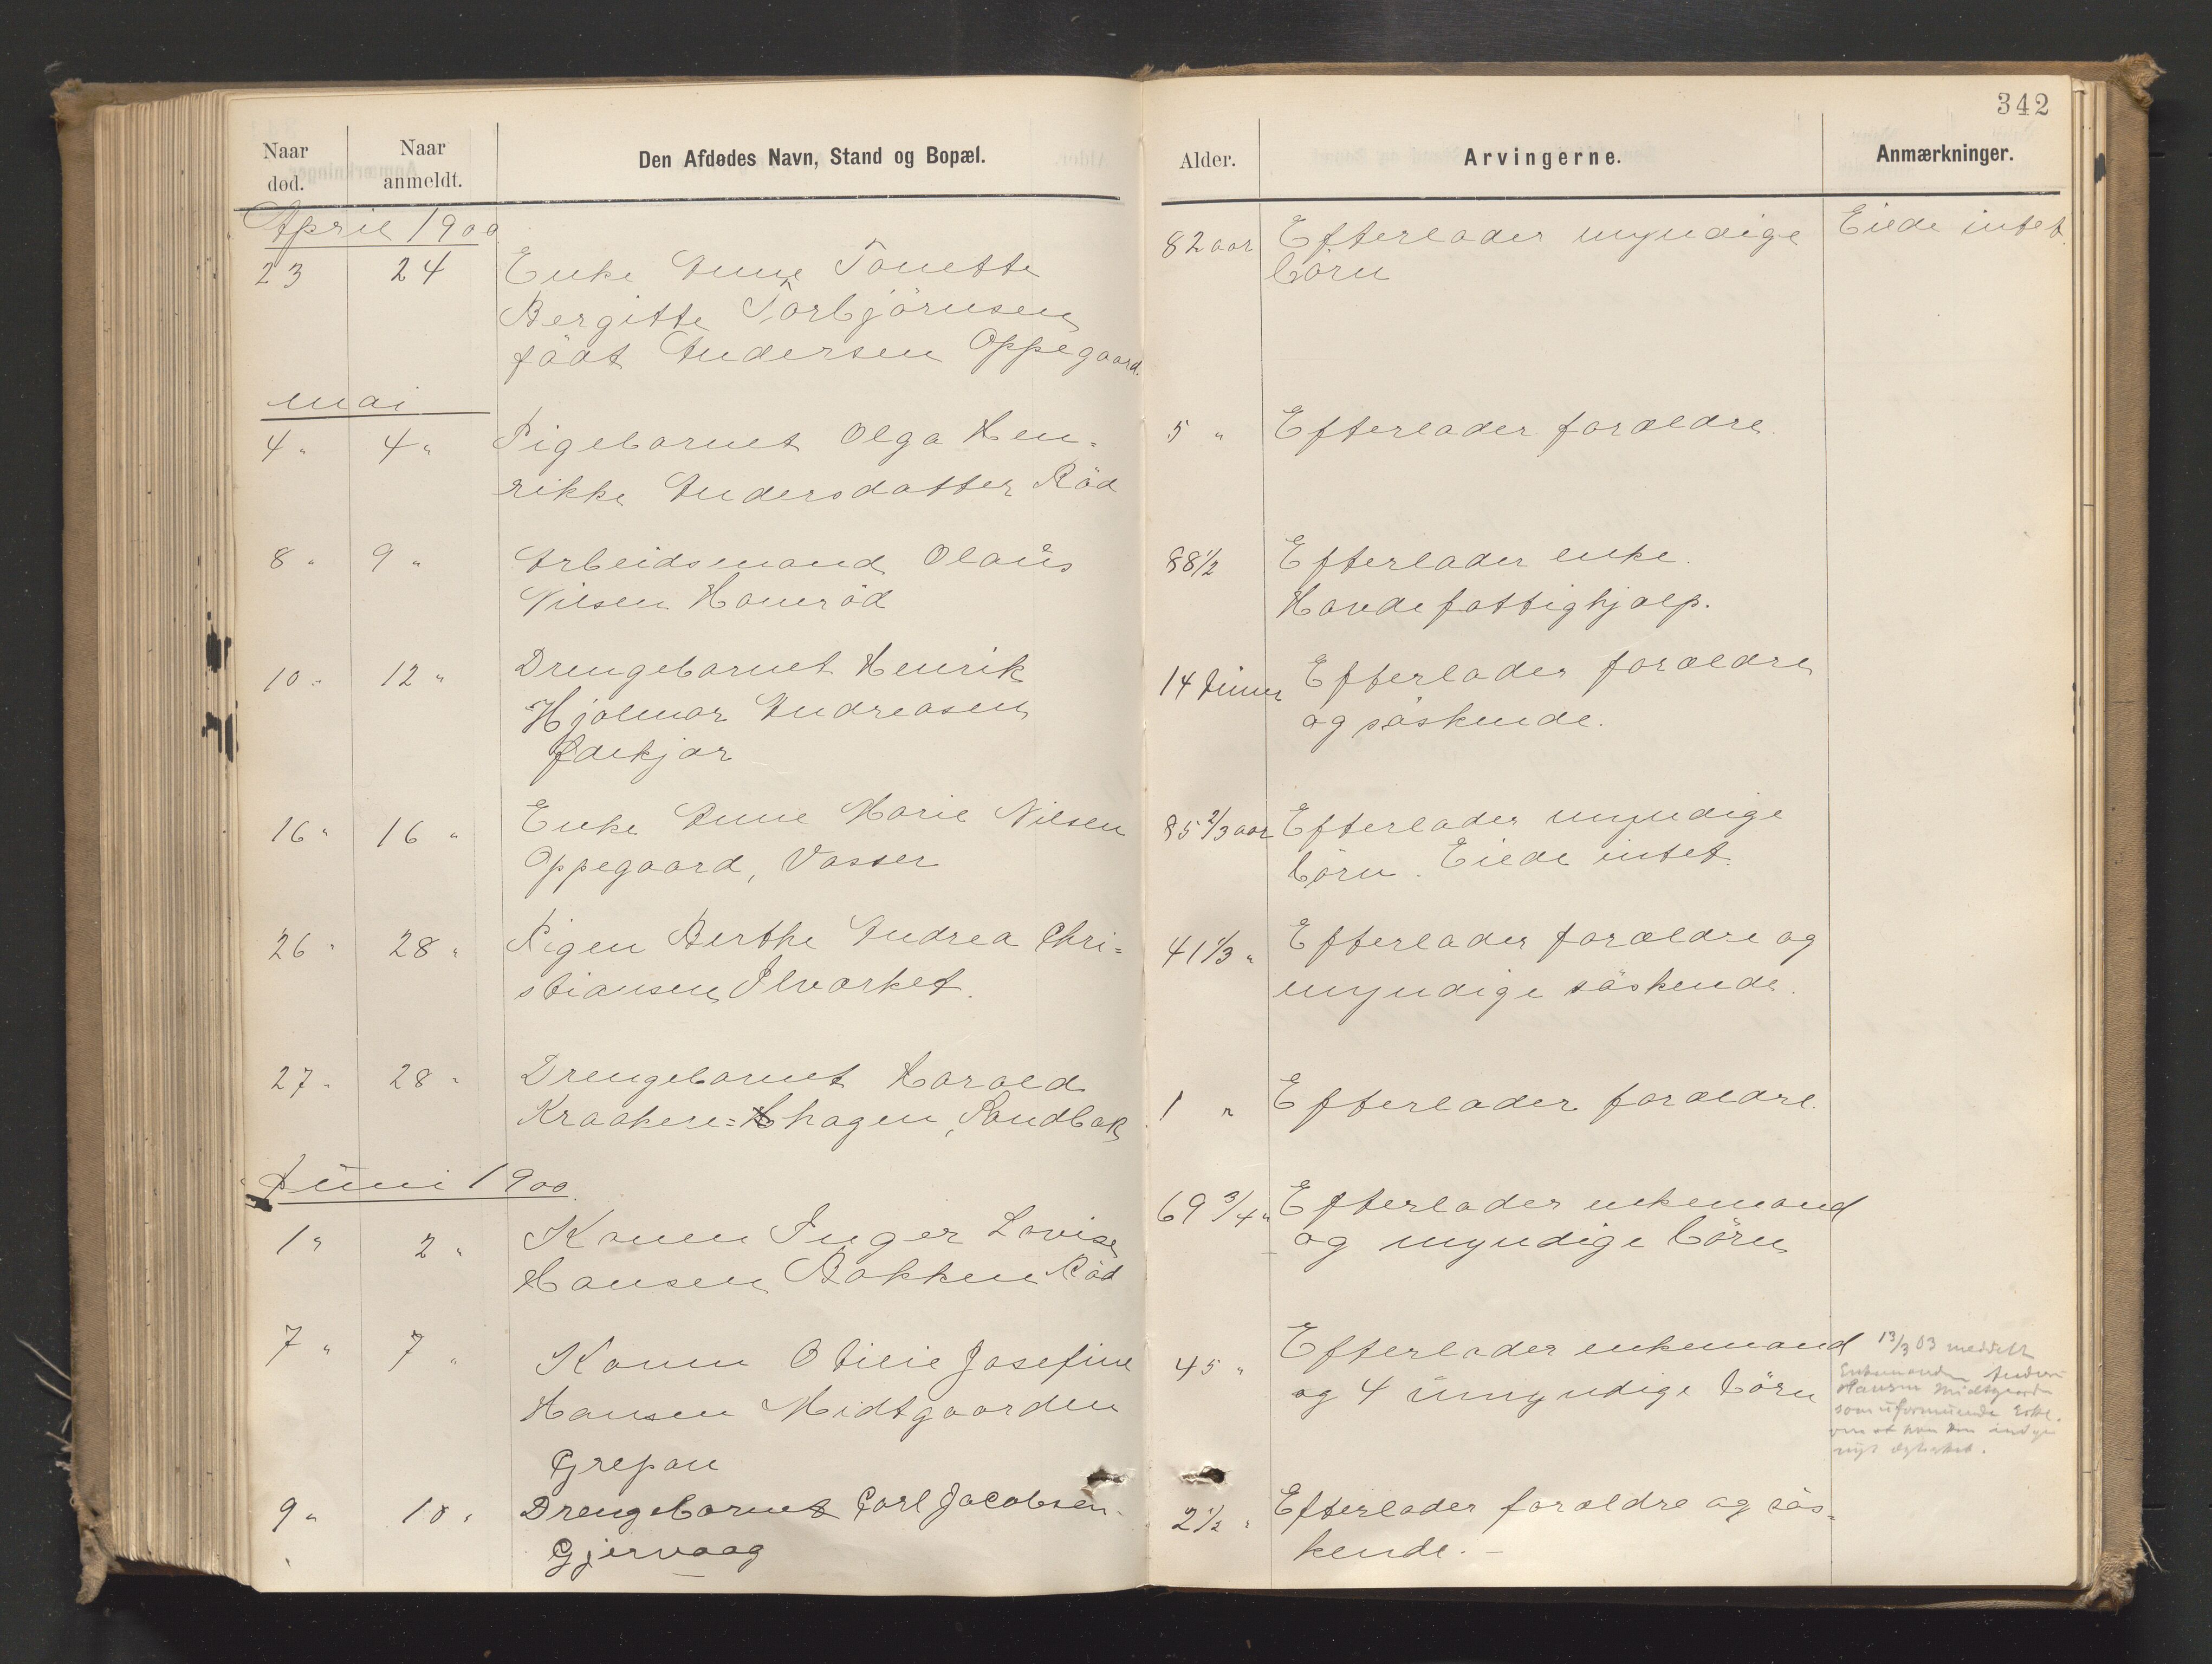 342
Naar død.
Naar anmeldt.
Den Afdødes Navn, Stand og Bopæl.
Alder.
Arvingerne.
Anmærkninger.
April 1900
23 24 Enke Anne Tonette
Bergitte Torbjörnsen
födt Andersen Oppegaard.
82 aar Efterlader myndige
börn
Eiede intet
mai
4 " 4 " Pigebarnet Olga Hen-
rikke Andersdatter Röd
5 " Efterlader forældre.
8 " 9 " Arbeidsmand Olaus
Nilsen Homröd
88 1/2 Efterlader enke.
Havde fattighjælp.
10 " 12 " Drengebarnet Henrik
Hjalmar Andreasen
Ødekjær
14 timer Efterlader forældre
og söskende.
16 " 16 " Enke Anne Marie Nilsen
Oppegaard, Vasser
85 2/3 aar Efterlader myndige
börn. Eiede intet.
26 " 28 " Pigen Berthe Andrea Chri=
stiansen Ilværket.
41 1/3 " Efterlader forældre og
myndige söskende.
27 " 28 " Drengebarnet Harald
Kraakere=hagen, Sandbæk
1 " Efterlader forældre.
Juni 1900.
1 " 2 " Konen Inger Lovise
Hansen Bakken Röd
69 3/4 " Efterlader enkemand
og myndige börn
7 " 7 " Konen Otilie Josefine
Hansen Midtgaarden
Grepan
45 " Efterlader enkemand
og 4 umyndige börn
13/3 03 meddelt
Enkemanden
Hansen Midtgaarden
som uformuende
9 " 10 " Drengebarnet Carl Jacobsen.
Gjervaag
2 1/2 " Efterlader forældre og sös=
kende. –